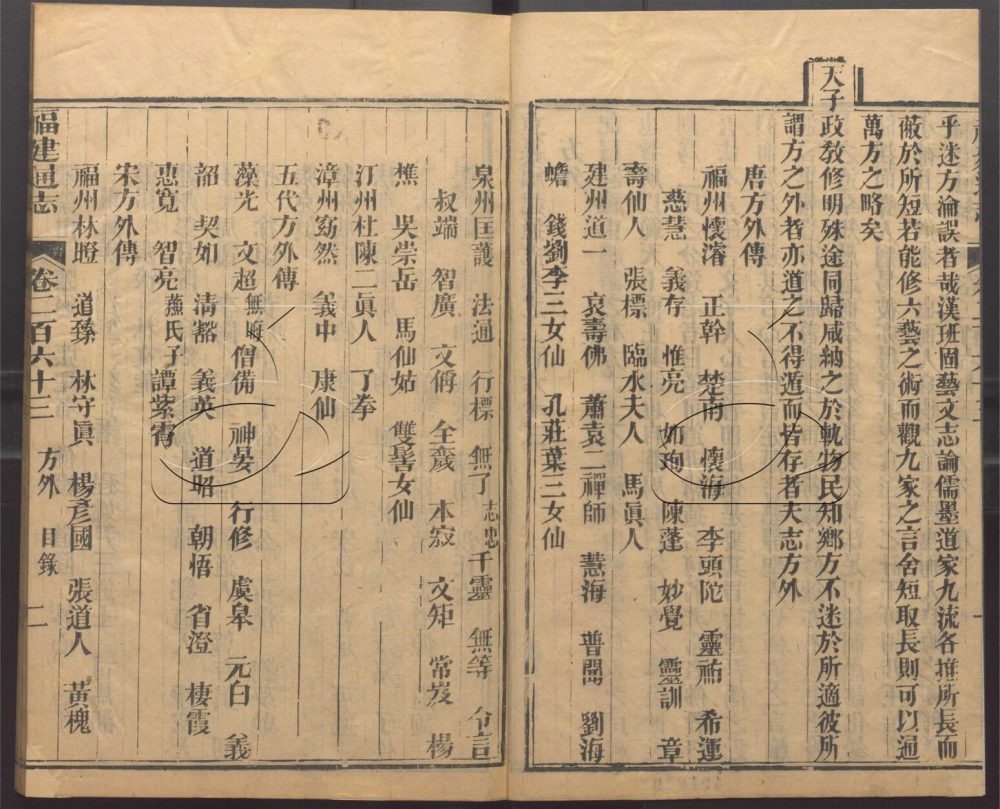 乎迷方淪誤者哉漢班固藝文志論儒墨道家九流各推所長而
蔽於所短若能修六藝之術而觀九家之言舍短取長則可以通
萬方之略矣
天子政敎修明殊途同歸咸納之於軌物民知鄉方不迷於所適彼所
謂方之外者亦道之不得遁而皆存者夫志方外
唐方外傳
福州懷濬 正幹 楚南 懷海 李頭陀 靈祐 希運
慈慧 義存 惟亮 如珣 陳蓬 妙覺 靈訓 章
壽仙人 張標 臨水夫人 馬眞人
建州道一 哀壽佛 蕭袁二禪師 慧海 普聞 劉海
蟾 錢劉李三女仙 孔莊葉三女仙
泉州匡護 法通 行標 無了 志忠 千靈 無等 令言
叔端 智廣 文偁 全豁 本寂 文矩 常岌 楊
樵 吳崇岳 馬仙姑 雙髻女仙
汀州杜陳二眞人 了拳
漳州 義中 康仙
五代方外傳
藻光 文超 無 僧備 神晏 行修 虞皋 元白 義
韶 契如 清豁 義英 道昭 朝悟 省澄 棲霞
惠寬 智亮 燕氏子 譚紫霄
宋方外傳
福州林瞪 道臻 林守眞 楊彥國 張道人 黃槐
福建通志 卷二百六十三 方外 目錄 二